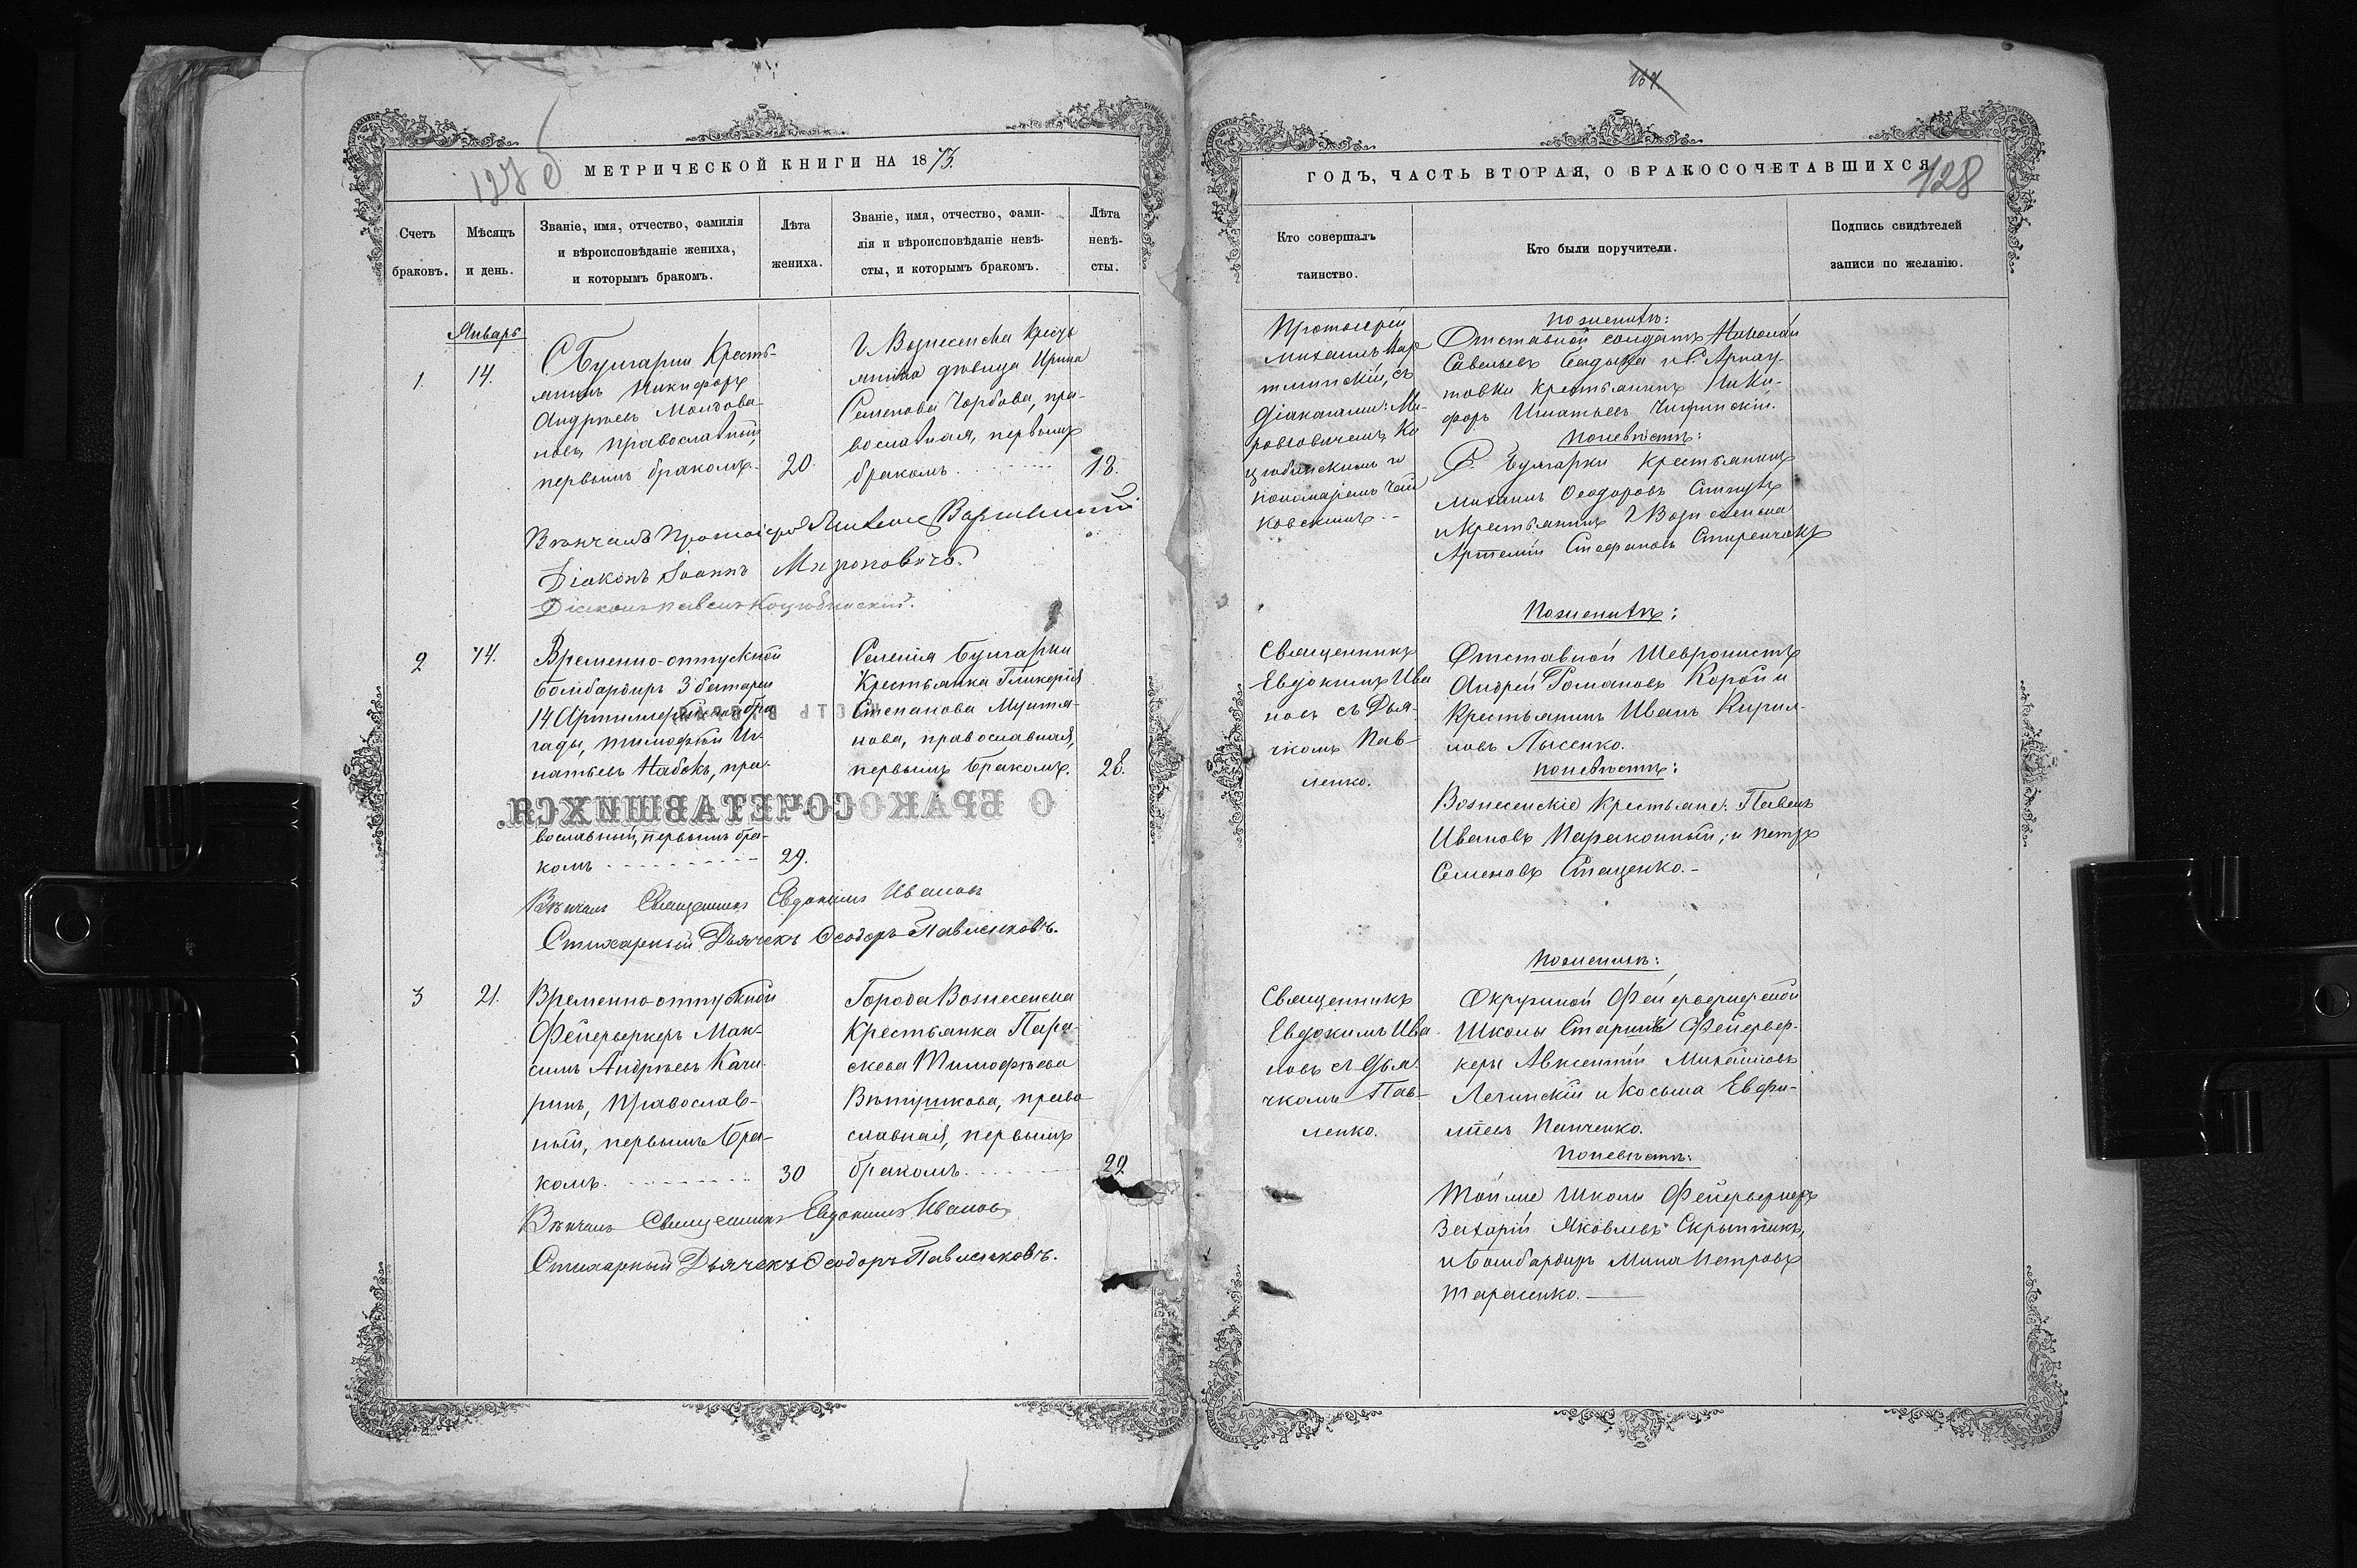 127 б
МЕТРИЧЕСКОЙ КНИГИ НА 1873.
Счетъ браковъ.
Мѣсяцъ и день.
Званіе, имя, отчество, фамилія
и вѣроисповѣданіе жениха,
и которымъ бракомъ.
Лѣта жениха.
Званіе, имя, отчество, фами-
лія и вѣроисповѣданіе невѣ-
сты, и которымъ бракомъ.
Лѣта невѣ-
сты.
Январь
1. 14.
С. Булгарки Кресть-
янинъ Никифоръ
Андреевъ Молдова-
новъ, православный,
первымъ бракомъ. 20.
Г. Вознесенска Кресть
янка дѣвица Ирина
Семенова Чорбова, пра-
вославная, первымъ
бракомъ. 18.
Вѣнчалъ Протоіерей Михаилъ
Діаконъ Іоаннъ Мироновичъ.
Діаконъ Павелъ Коцюбинскій.
2 14.
Временно-отпускной
бомбардиръ 3 батареи
14 Артиллерійской бри
гады, Тимофѣй Иг-
натьевъ Набокъ, пра-
вославный, первымъ бра-
комъ 29.
Селенія Булгарки
Крестьянка Гликерія
Степанова Мунтя-
нова, православная,
первымъ бракомъ. 28.
О БРАКОСОЧЕТАВШИХСЯ.
Вѣнчалъ Священникъ Евдокимъ Ивановъ
Стихарный Дьячекъ Ѳеодоръ Павленковъ.
3 21.
Временно-отпускной
Фейерверкеръ Мак-
симъ Андреевъ Качу-
ринъ, Православ-
ный, первымъ бра-
комъ. 30
Города Вознесенска
Крестьянка Пара-
скева Тимофѣева
Вѣтрикова, право
славная, первымъ
бракомъ. 22
Вѣнчалъ Священникъ Евдокимъ Ивановъ
Стихарный Дьячекъ Ѳеодоръ Павленковъ.
164
128
ГОДЪ, ЧАСТЬ ВТОРАЯ, О БРАКОСОЧЕТАВШИХСЯ
Кто совершалъ
таинство.
Кто были поручители.
Подпись свидѣтелей
записи по желанію.
Протоіерей
Михаилъ Вар
тминскій, съ
діаконами: Ми-
роновичемъ, Ко
цюбинскимъ и
пономаремъ Чай
ковскимъ.
По женихѣ:
Отставной солдатъ Николай
Савельевъ и С. Арнау-
товки крестьянинъ Ники-
форъ Игнатьевъ
По невѣстѣ:
С. Булгарки крестьянинъ
Михаилъ Ѳеодоровъ
и Крестьянинъ Г. Вознесенска
Артемій Стефановъ
Священникъ
Евдокимъ Ива
новъ съ Дья-
чкомъ Пав-
ленко.
По женихѣ:
Отставной Шевронистъ
Андрей Романовъ Корой и
Крестьянинъ Иванъ Кирил-
ловъ Лысенко.
По невѣстѣ:
Вознесенскіе крестьяне: Павелъ
Ивановъ Параконный, и Петръ
Семеновъ Стаценко.
Священникъ
Евдокимъ Ива
новъ съ Дья-
чкомъ Пав-
ленко.
По женихѣ:
Окружной Фейерверкерской
Школы Старшіе Фейервер-
керы Авксентій Михайловъ
Легинскій и Косьма Евфи-
міевъ Панченко.
По невѣстѣ:
Той же Школы Фейерверкеръ
Захарій Яковлевъ Скрыпникъ,
и Бомбардиръ Мина Петровъ
Тарасенко.